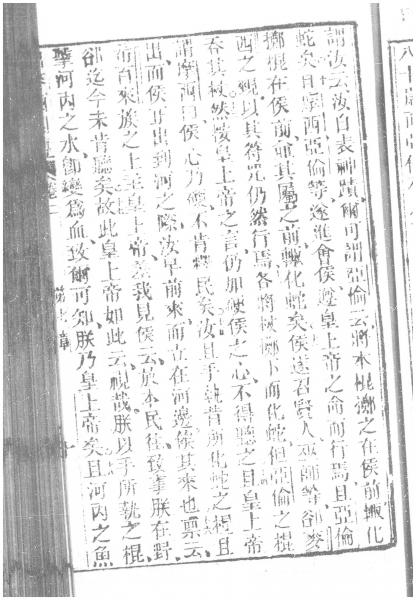 謂汝云汝自表神蹟爾可謂亞倫云將本棍擲之在侯前輒化
蛇矣且摩西亞倫等遂進會侯遵皇上帝之命而行焉且亞倫
擲棍在侯前並其屬之前輒化蛇矣侯遂召賢人巫師等卻麥
西之覡以其符咒仍然行焉各將棍擲下而化蛇但亞倫之棍
吞其杖然後皇上帝之言仍加硬侯之心不得聽之且皇上帝
謂摩西曰侯心乃硬不肯釋民矣汝且手執昔所化蛇之棍且
出而侯早出到河之際汝早前來而立在河邊侯其來也稟云
希百來族之上主皇上帝差我見侯云於本民徃致事朕在野
卻迄今未肯聽矣故此皇上帝如此云視哉朕以手所執之棍
擊河內之水卽變為血致爾可知朕乃皇上帝矣且河內之魚